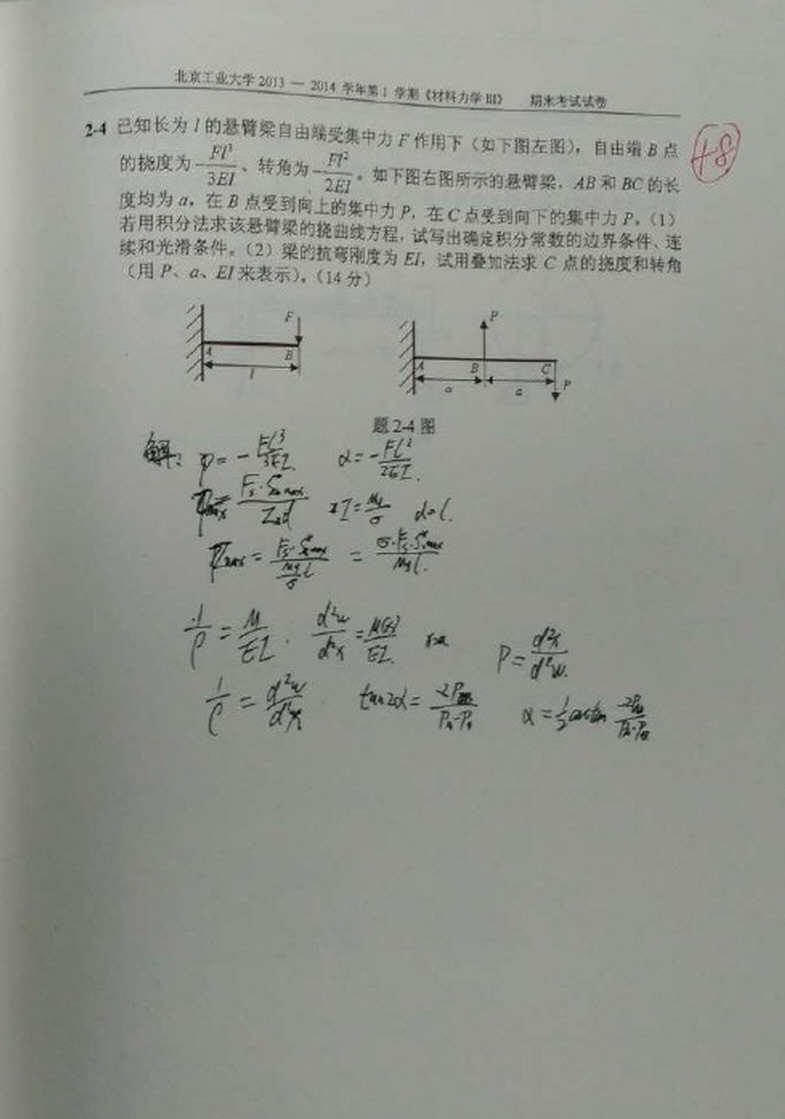 北京工业大学 2013 — 2014 学年第 1 学期《材料力学 III》 期末考试试卷
+8
2-4 已知长为 l 的悬臂梁自由端受集中力 F 作用下（如下图左图），自由端 B 点
的挠度为 -Fl³/3EI、转角为 -Fl²/2EI。如下图右图所示的悬臂梁，AB 和 BC 的长
度均为 a，在 B 点受到向上的集中力 P，在 C 点受到向下的集中力 P。(1)
若用积分法求该悬臂梁的挠曲线方程，试写出确定积分常数的边界条件、连
续和光滑条件。(2) 梁的抗弯刚度为 EI，试用叠加法求 C 点的挠度和转角
（用 P、a、EI 来表示）。（14 分）
F
A B
l
P
A B C
a a P
题 2-4 图
解: φ = -Fl³/3EI α = -Fl²/2EI.
d=l.
1/ρ = M/EI . d²w/d²x = M(x)/EI. ρ = d²x/d²w.
1/ρ = d²w/d²x tan2α =